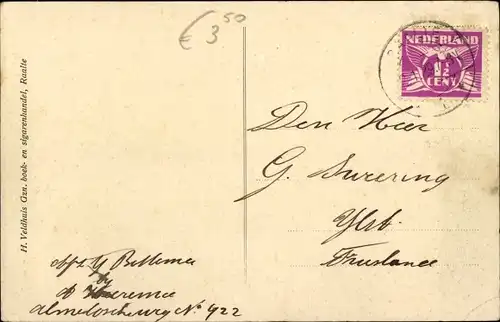 € 3 50
NEDERLAND
1½
CENT
Den Heer
G. Surering
Ylst
Friesland
H. Veldhuis Gzn. boek- en sigarenhandel, Raalte
Afz. Y Bettema
by
A
Almeloscheweg No. 922